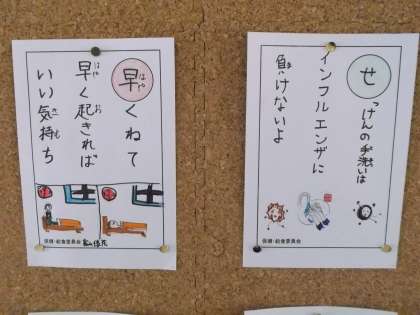 早くねて
早く起きれば
いい気持ち
保健・給食委員会
せっけんの手洗いは
インフルエンザに
負けないよ
保健・給食委員会